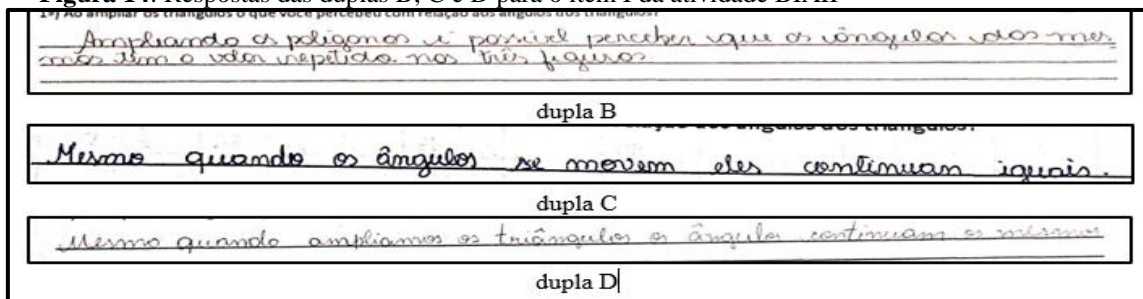 Figura 14: Respostas das duplas B, C e D para o item I da atividade
1º) Ao ampliar os triângulos o que você percebeu com relação aos ângulos dos triângulos?
Ampliando os poligonos é possivel perceber que os ângulos dos mes
mos tem o valor repetido nos três figuras
dupla B
relação aos ângulos dos triângulos?
Mesmo quando os ângulos se movem eles continuan iguais.
dupla C
Mesmo quando ampliamos os triângulos os ângulos continuam os mesmos
dupla D